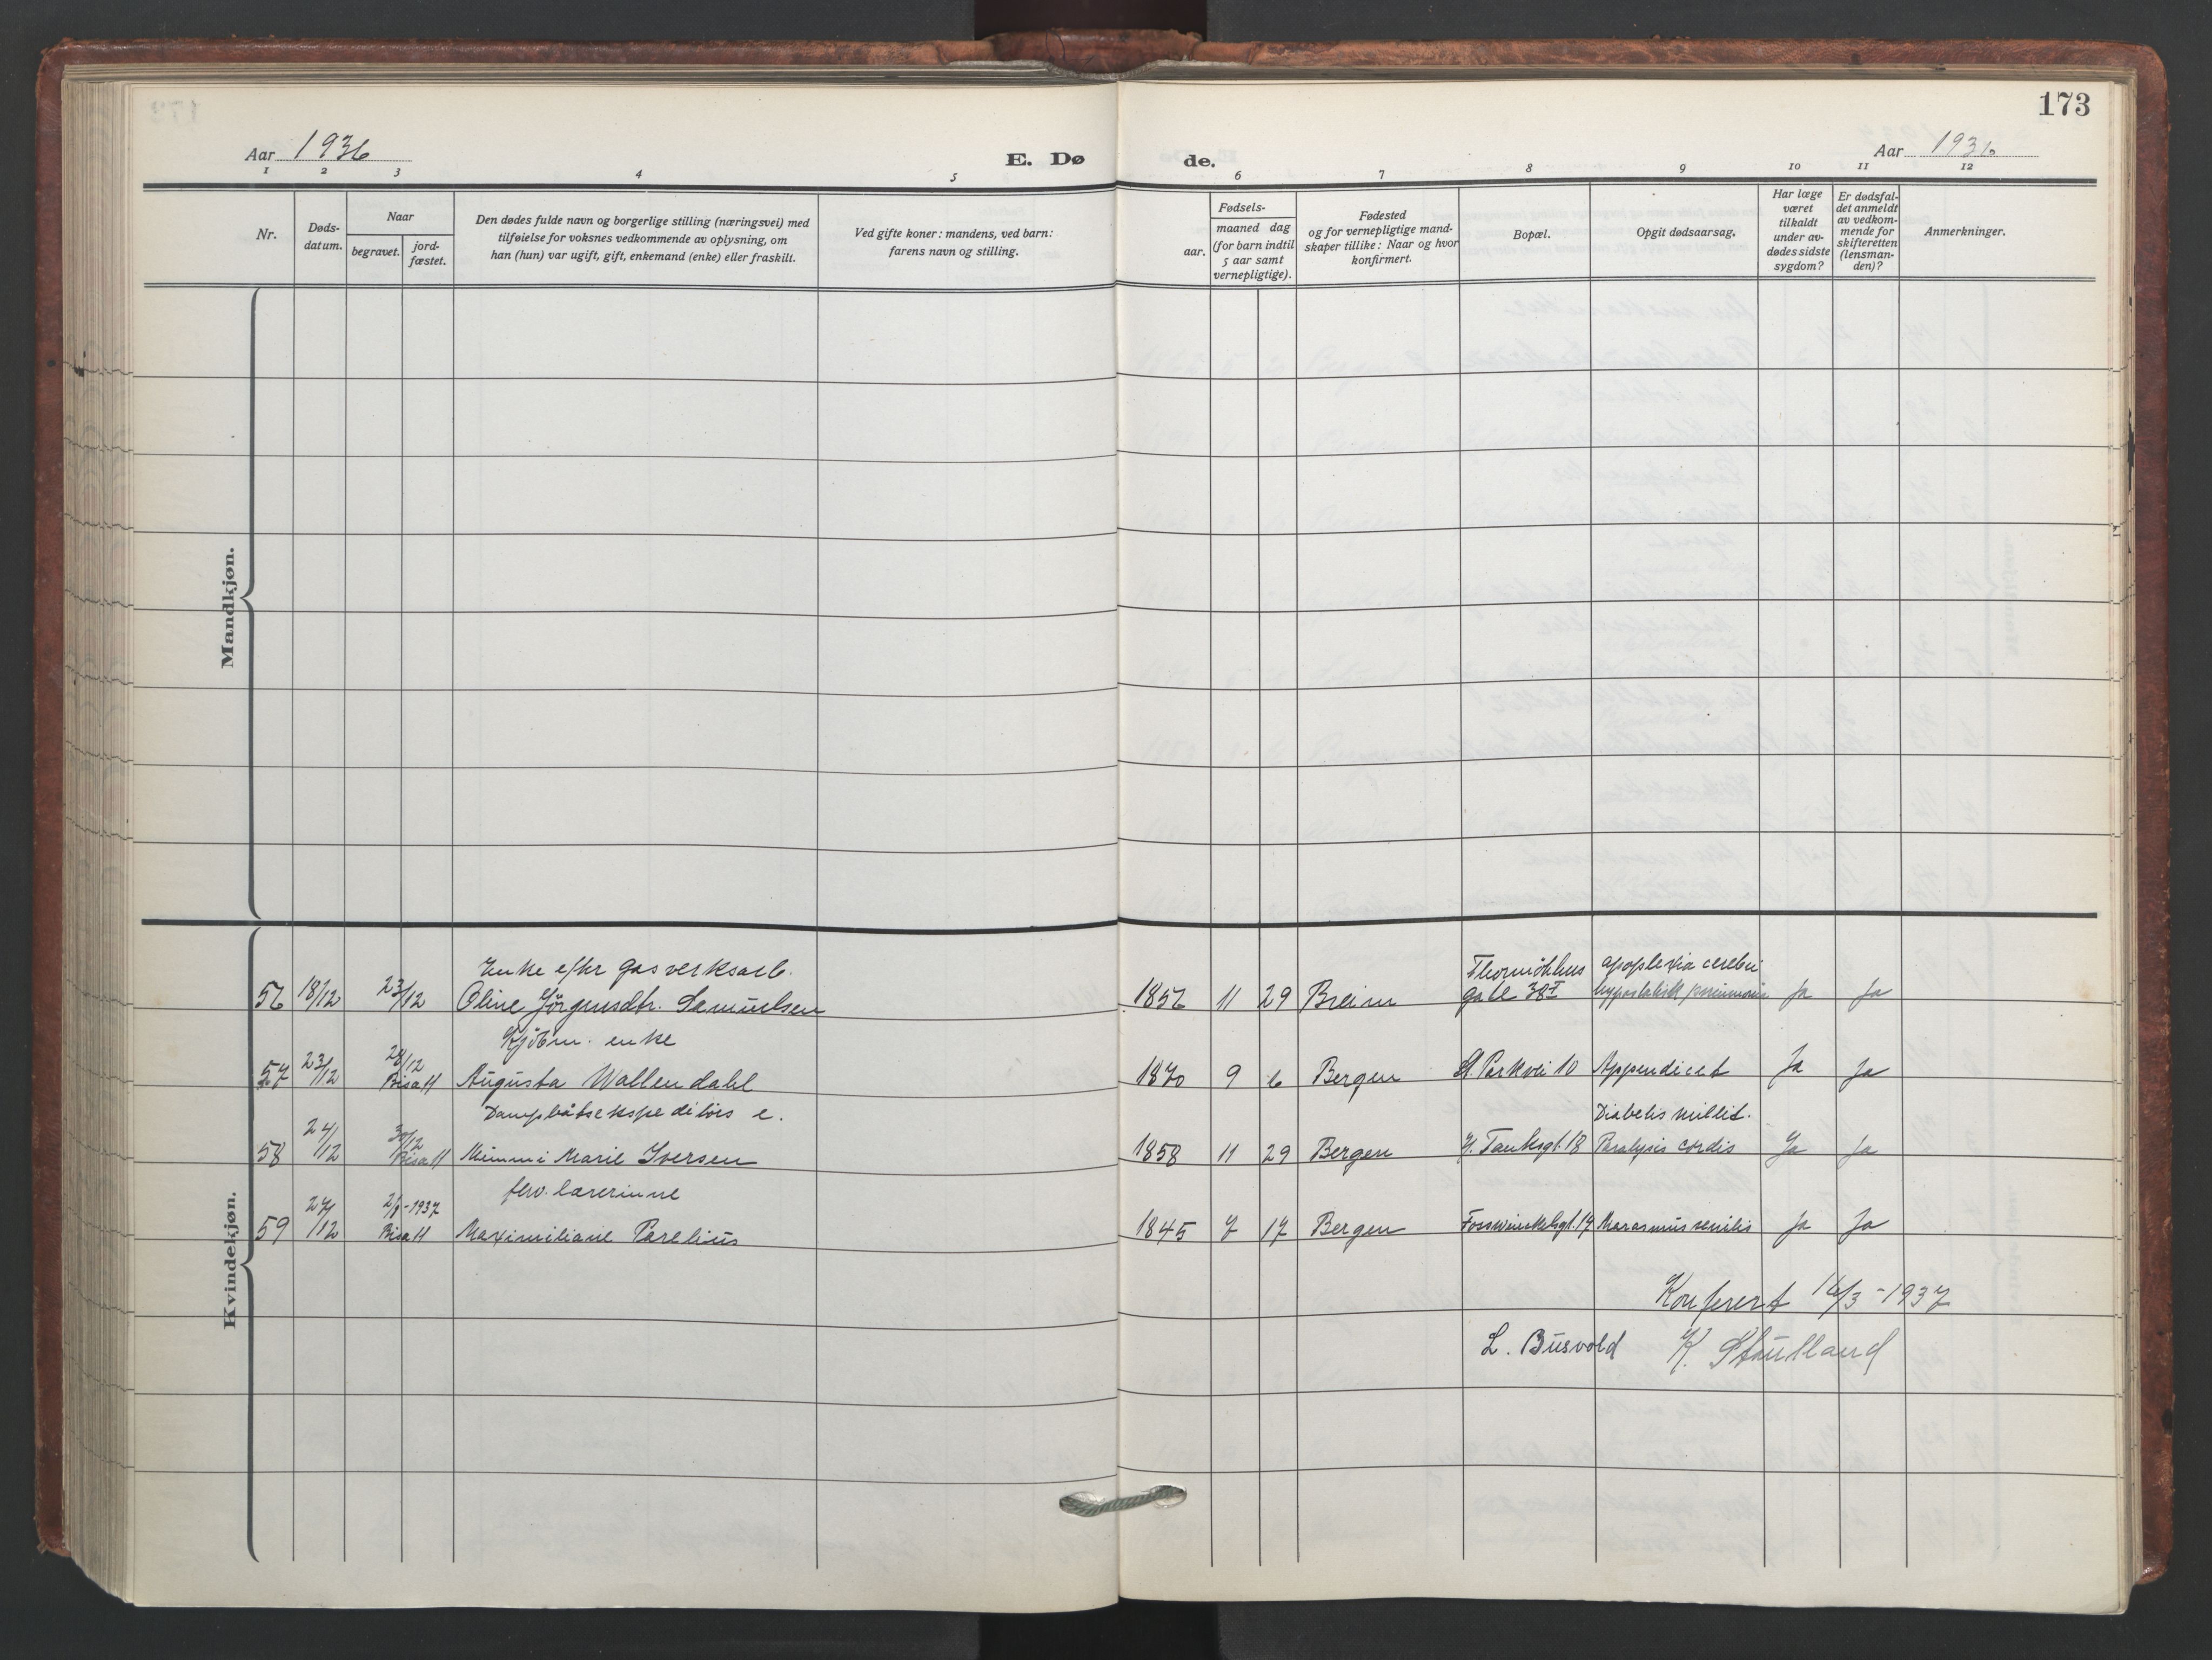 173
Aar 1936
E. Dø de.
Aar 1936
1 2 3 4 5 6 7 8 9 10 11 12
Nr.
Døds-
datum.
Naar
begravet.
jord-
fæstet.
Den dødes fulde navn og borgerlige stilling (næringsvei) med
tilføielse for voksnes vedkommende av oplysning, om
han (hun) var ugift, gift, enkemand (enke) eller fraskilt.
Ved gifte koner: mandens, ved barn:
farens navn og stilling.
Fødsels-
aar.
maaned dag
(for barn indtil
5 aar samt
vernepligtige).
Fødested
og for vernepligtige mand-
skaper tillike: Naar og hvor
konfirmert.
Bopæl.
Opgit dødsaarsag.
Har læge
været
tilkaldt
under av-
dødes sidste
sygdom?
Er dødsfal-
det anmeldt
av vedkom-
mende for
skifteretten
(lensman-
den)?
Anmerkninger.
Mandkjøn.
Kvindekjøn.
Enke efter gasverksarb. Thormöhlens apoplexia cerebri
56 18/12 23/12 Oline Jörgensdtr. Samuelsen 1856 11 29 Breim gate 38 I hypostatisk pneumoni Ja Ja
Kjöbm. enke
57 23/12 28/12 Bisatt Augusta Wallendahl 1870 9 6 Bergen St. Parkvei 10 Appendicit Ja Ja
Dampbåtsekspeditörs e. Diabetes mellit.
58 24/12 30/12 Bisatt Mimmi Marie Iversen 1858 11 29 Bergen N. Tanksgt. 18 Paralysis cordis Ja Ja
fhv. lærerinne
59 27/12 2/1-1937 Bisatt Maximiliane Parelius 1845 7 17 Bergen Fosswinkelsgt. 19 Marasmus senilis Ja Ja
Konferert 16/3-1937
L. Busvold K. Støutland